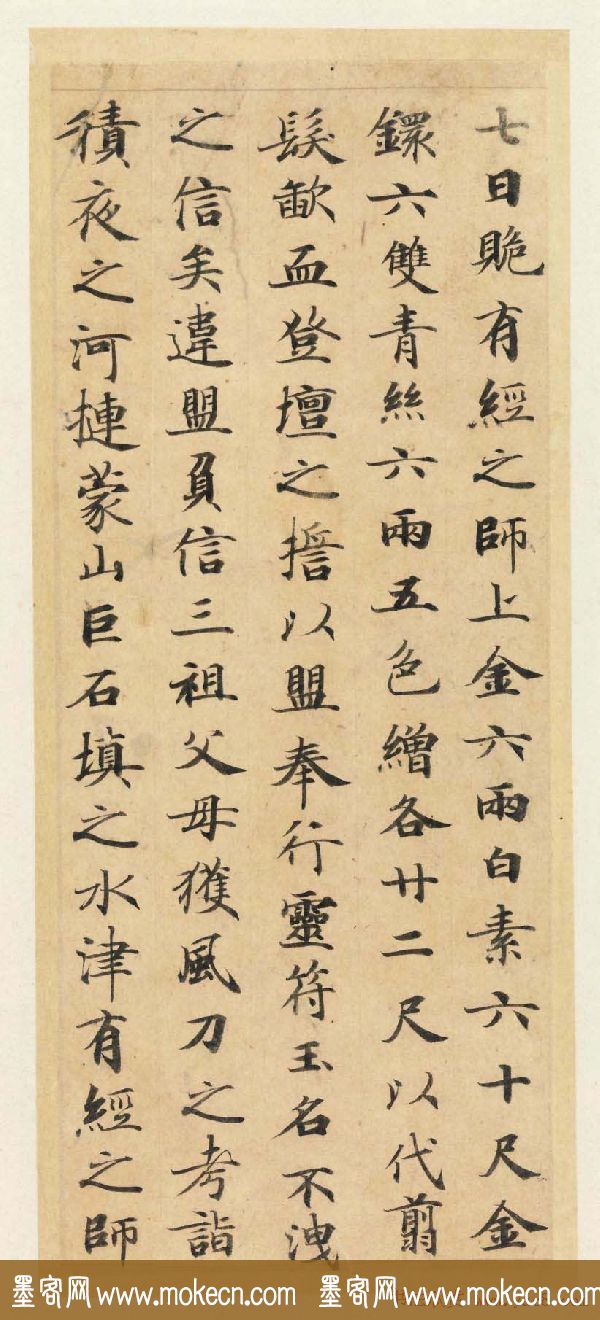 七日貱有經之師上金六兩白素六十尺金
鐶六雙青絲六兩五色繒各廿二尺以代翦
髮歃血登壇之誓以盟奉行靈符玉名不洩
之信矣違盟負信三祖父母獲風刀之考詣
積夜之河摙蒙山巨石填之水津有經之師
墨客网 www.mokecn.com 墨客网 www.mokecn.com